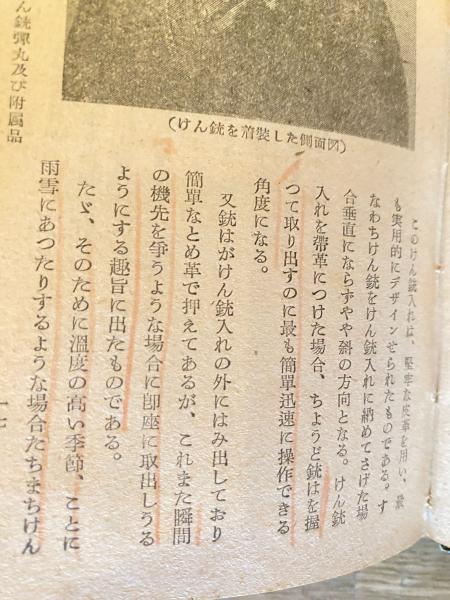 (けん銃を着装した側面図)
このけん銃入れは、堅牢な皮革を用い、最
も実用的にデザインせられたものである。す
なわちけん銃をけん銃入れに納めてさげた場
合垂直にならずやや斜の方向となる。けん銃
入れを帶革につけた場合、ちようど銃はを握
つて取り出すのに最も簡單迅速に操作できる
角度になる。
又銃はがけん銃入れの外にはみ出しており
簡單なとめ革で押えてあるが、これまた瞬間
の機先を爭うような場合に卽座に取出しうる
ようにする趣旨に出たものである。
たゞ、そのために溫度の高い季節、ことに
雨雪にあつたりするような場合たちまちけん
ん銃彈丸及び附属品
一七